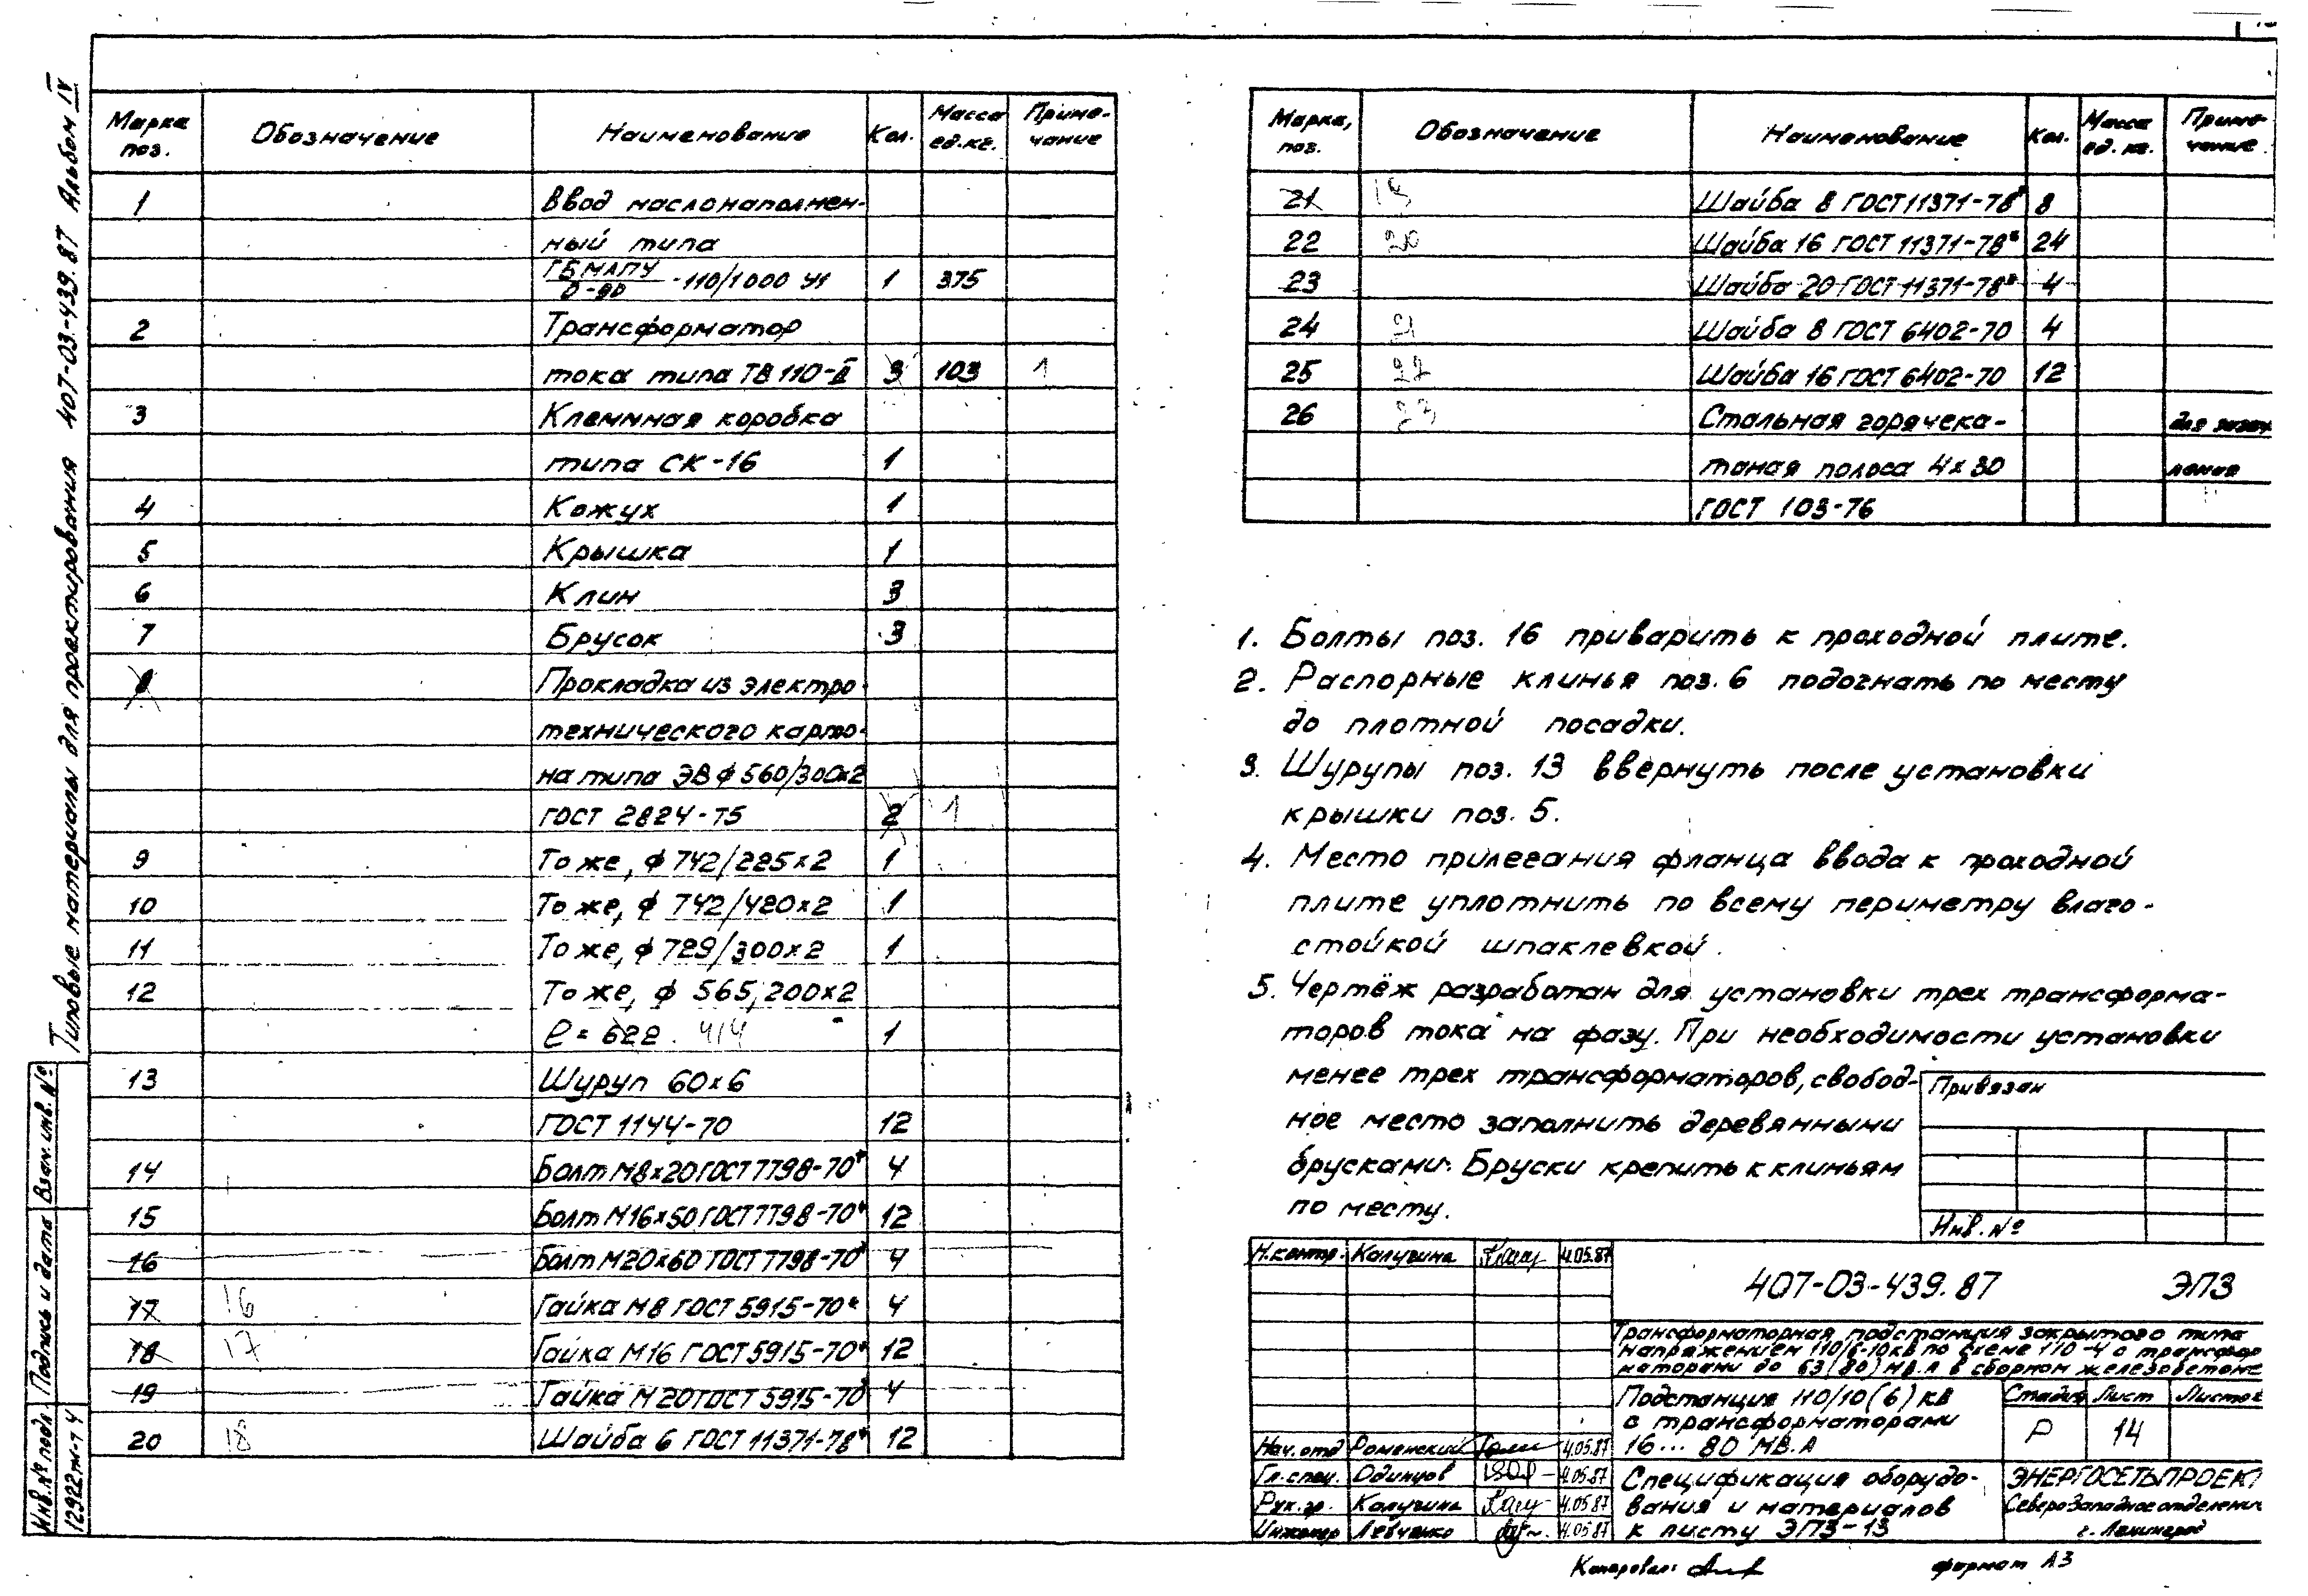 Типовые материалы для проектирования 407-03-439.87 Альбом IV
Марка поз. Обозначение Наименование Кол. Масса ед.кг. Примечание
1 Ввод маслонаполнен-
ный типа
ГБМЛПУ/0-90 -110/1000 У1 1 375
2 Трансформатор
тока типа ТВ 110-II 3 103 1
3 Клеммная коробка
типа СК-16 1
4 Кожух 1
5 Крышка 1
6 Клин 3
7 Брусок 3
Прокладка из электро-
технического карто-
на типа ЭВ ф 560/300х2
ГОСТ 2824-75 2 1
9 То же, ф 742/225х2 1
10 То же, ф 742/420х2 1
11 То же, ф 729/300х2 1
12 То же, ф 565, 200х2
ℓ = 622 414 1
13 Шуруп 60х6
ГОСТ 1144-70 12
14 Болт М8х20 ГОСТ 7798-70* 4
15 Болт М16х50 ГОСТ 7798-70* 12
16 Болт М20х60 ГОСТ 7798-70* 4
17 16 Гайка М8 ГОСТ 5915-70* 4
18 17 Гайка М16 ГОСТ 5915-70* 12
19 Гайка М20 ГОСТ 5915-70* 4
20 18 Шайба 6 ГОСТ 11371-78* 12
Марка, поз. Обозначение Наименование Кол. Масса ед. кг. Примечание
21 19 Шайба 8 ГОСТ 11371-78* 8
22 20 Шайба 16 ГОСТ 11371-78* 24
23 Шайба 20 ГОСТ 11371-78* 4
24 21 Шайба 8 ГОСТ 6402-70 4
25 22 Шайба 16 ГОСТ 6402-70 12
26 23 Стальная горячека- для зазем-
таная полоса 4х30 ления
ГОСТ 103-76
1. Болты поз. 16 приварить к проходной плите.
2. Распорные клинья поз. 6 подогнать по месту
до плотной посадки.
3. Шурупы поз. 13 ввернуть после установки
крышки поз. 5.
4. Место прилегания фланца ввода к проходной
плите уплотнить по всему периметру влаго-
стойкой шпаклевкой.
5. Чертёж разработан для установки трех трансформа-
торов тока на фазу. При необходимости установки
менее трех трансформаторов, свобод-
ное место заполнить деревянными
брусками. Бруски крепить к клиньям
по месту.
Привязан
Инв. №
Н.контр. Калугина 4.05.87
407-03-439.87 ЭП3
Трансформаторная подстанция закрытого типа
напряжением 110/6-10кВ по схеме 110-4 с трансфор
маторами до 63(80) МВ.А в сборном железобетоне
Подстанция 110/10(6) кВ
с трансформаторами
16... 80 МВ.А
Стадия Лист Листов
Р 14
Нач.отд Роменский 4.05.87
Гл.спец. Одинцов 4.05.87
Рук.гр. Калугина 4.05.87
Инженер Левченко 4.05.87
Спецификация оборудо-
вания и материалов
к листу ЭП3-13
ЭНЕРГОСЕТЬПРОЕКТ
Северо-Западное отделение
г. Ленинград
Копировал: формат А3
Инв.№ подл. Подпись и дата Взам.инв.№
12922тм-т4